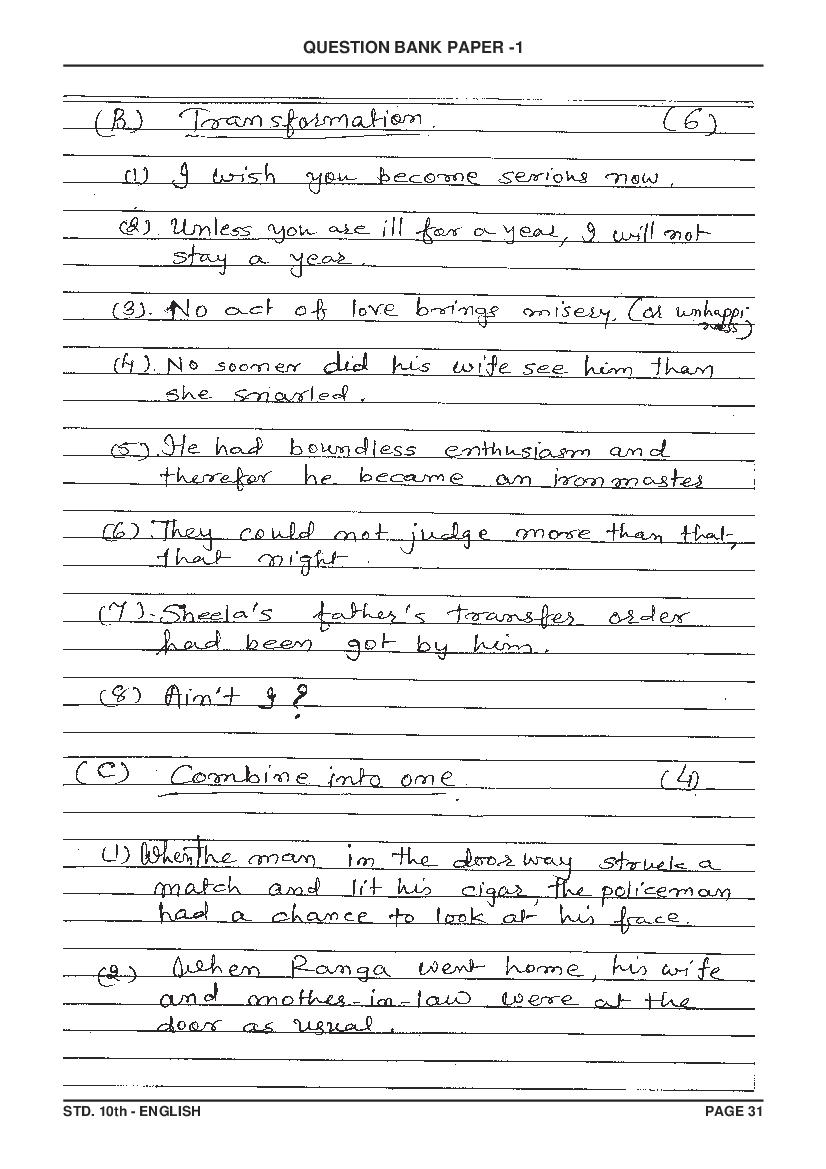 QUESTION BANK PAPER -1
(B) Transformation. (6)
(1) I wish you become serious now.
(2). Unless you are ill for a year, I will not
stay a year.
(3). No act of love brings misery. (or unhappi-
ness)
(4). No sooner did his wife see him than
she snarled.
(5). He had boundless enthusiasm and
therefor he became an ironmaster
(6). They could not judge more than that,
that night.
(7). Sheela's father's transfer order
had been got by him.
(8) Ain't I ?
(C) Combine into one (4)
(1) When the man in the doorway struck a
match and lit his cigar, the policeman
had a chance to look at his face.
(2.) When Ranga went home, his wife
and mother-in-law were at the
door as usual.
STD. 10th - ENGLISH PAGE 31